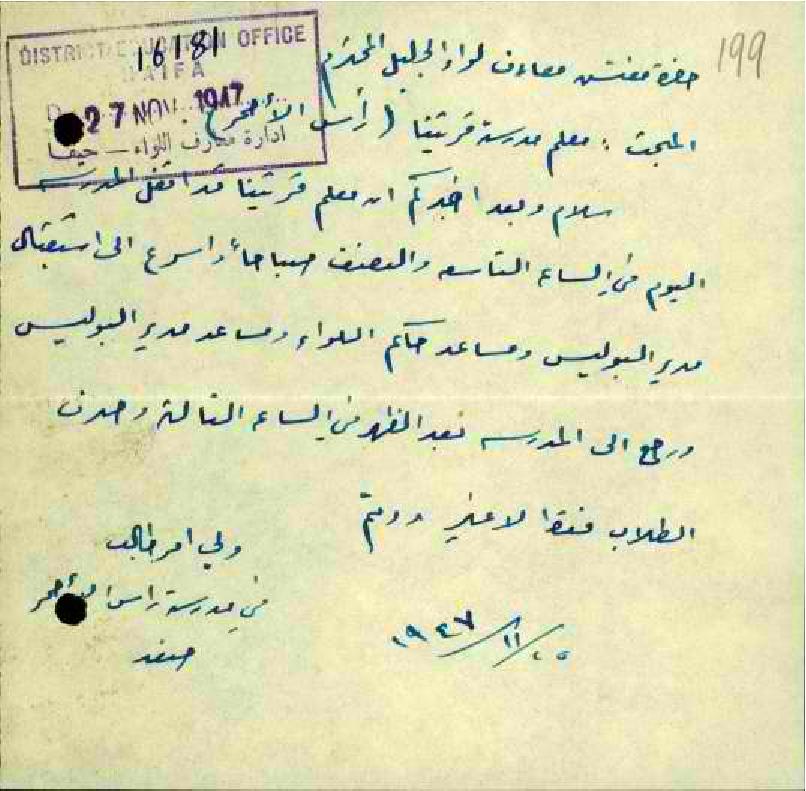 199
DISTRICT EDUCATION OFFICE
HAIFA
16181
27 NOV. 1947
ادارة معارف اللواء — حيفا
حضرة مفتش معارف لواء الجليل المحترم
المبحث : معلم مدرسة قريتنا (رأس الأحمر)
سلام وبعد اخبركم ان معلم قريتنا قد اقفل المدرسه
اليوم في الساعه التاسعه والنصف صباحاً واسرع الى استقبال
مدير البوليس ومساعد حاكم اللواء ومساعد مدير البوليس
ورجع الى المدرسه بعد الظهر في الساعه الثالثة وصرف
الطلاب فقط لا غير ودمتم
ولي امر طالب
في مدرسة راس الأحمر
صفد
٢٥/١١/١٩٤٧